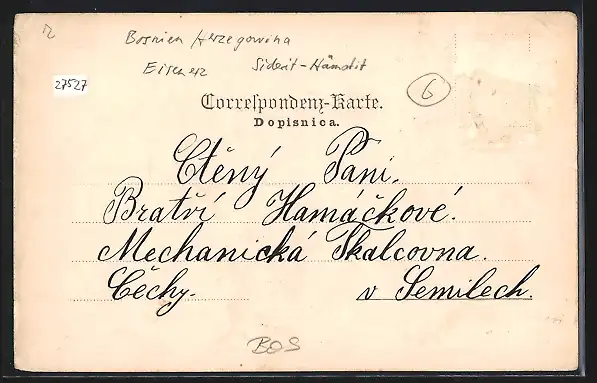 Bosnien Herzegowina
Eisenerz Siderit-Hämatit
27527
6
Correspondenz-Karte.
Dopisnica.
Ctěný Páni.
Bratří Hamáčkové.
Mechanická Tkalcovna.
Čechy. v Semilech.
BOS